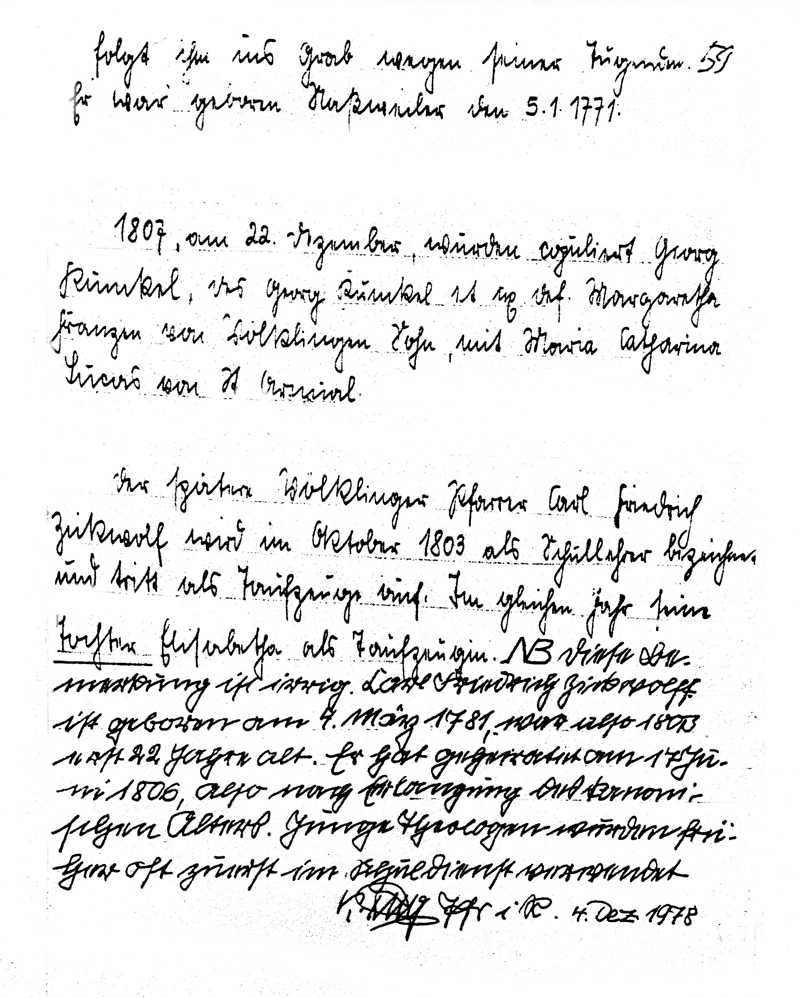 folgt ihm ins Grab wegen seiner Tugenden. 59
Er war geboren Naßweiler den 5.1.1771.
1807, am 22. Dezember, wurden copuliert Georg
Kunkel, des Georg Kunkel et ux def. Margaretha
Franzen von Völklingen Sohn, mit Maria Catharina
Lucas von St Arnual.
Der spätere Völklinger Pfarrer Carl Friedrich
Zickwolf wird im Oktober 1803 als Schullehrer bezeichnet
und tritt als Taufzeuge auf. Im gleichen Jahr seine
Tochter Elisabetha als Taufzeugin. NB diese Be-
merkung ist irrig. Carl Friedrich Zickwolff
ist geboren am 4. März 1781, war also 1803
erst 22 Jahre alt. Er hat geheiratet am 17 Ju-
ni 1806, also nach Erlangung des kanoni-
schen Alters. Junge Theologen wurden frü-
her oft zuerst im Schuldienst verwendet
Pfr i R. 4. Dez 1978